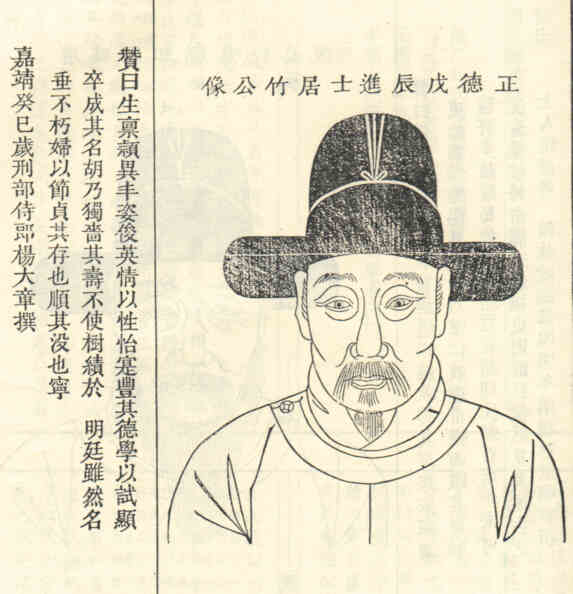 正德戊辰進士居竹公像
贊曰生稟穎異丰姿俊英情以性怡寔豐其德學以試顯
卒成其名胡乃獨嗇其壽不使樹績於 明廷雖然名
垂不朽婦以節貞其存也順其没也寧
嘉靖癸巳歲刑部侍郎楊大章撰